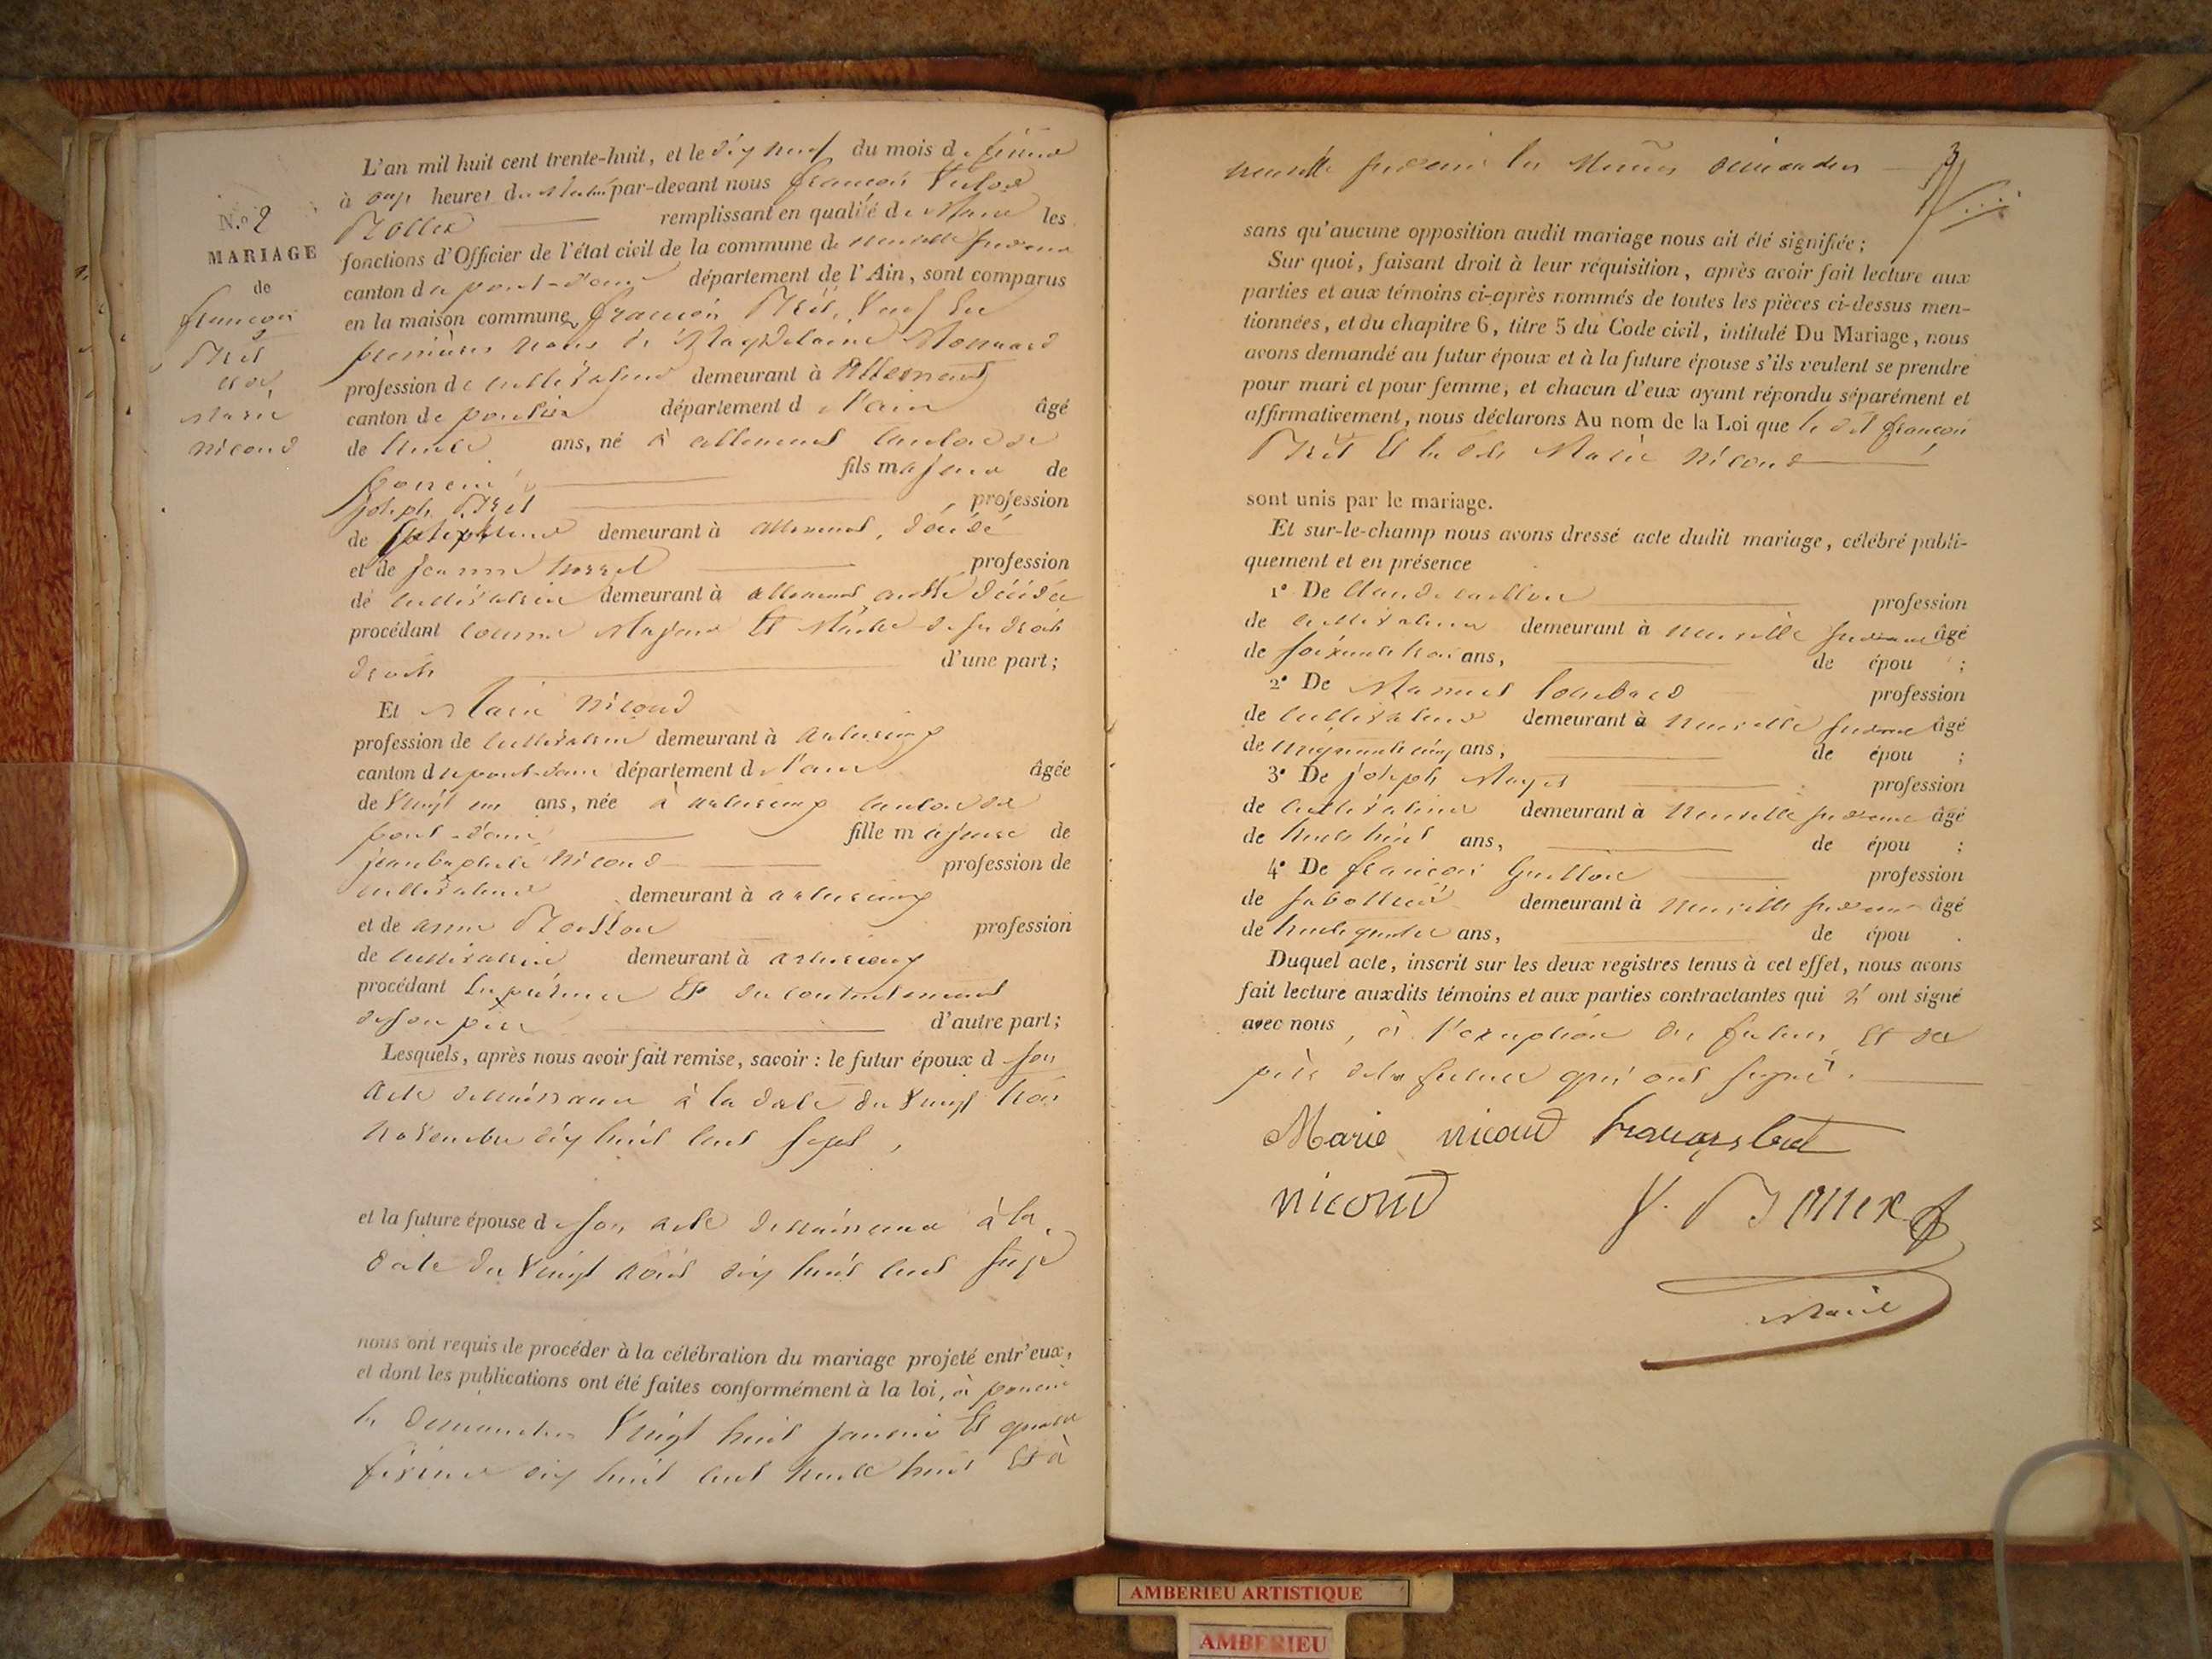 N.° 2
MARIAGE
de
françois
Bret
et de
Marie
nicoud
L'an mil huit cent trente-huit, et le dix neuf du mois de février
à onze heures du matin par-devant nous françois victor
Bollex remplissant en qualité de Maire les
fonctions d'Officier de l'état civil de la commune de neuville sur ain
canton de pont-d'ain département de l'Ain, sont comparus
en la maison commune, françois Bret, veuf en
premières noces de Magdelaine Monnard
profession de cultivateur demeurant à Allement
canton de poncin département de l'ain âgé
de trente ans, né à allement canton de
poncin fils majeur de
joseph Bret profession
de demeurant à allement, décédé
et de jeanne profession
de cultivatrice demeurant à allement aussi décédée
procédant comme Majeur et Maître de ses droits
droits d'une part;
Et Marie nicoud
profession de cultivatrice demeurant à
canton de pont-d'ain département de l'ain âgée
de vingt un ans, née à canton de
pont-d'ain fille majeure de
jean baptiste nicoud profession de
cultivateur demeurant à
et de anne profession
de cultivatrice demeurant à
procédant en présence et du consentement
de son père d'autre part;
Lesquels, après nous avoir fait remise, savoir : le futur époux de son
acte de naissance à la date du vingt trois
novembre dix huit cent sept,
et la future épouse de son acte de naissance à la
date du vingt août dix huit cent seize
nous ont requis de procéder à la célébration du mariage projeté entr'eux,
et dont les publications ont été faites conformément à la loi, à poncin
les dimanches vingt huit janvier et quatre
février dix huit cent trente huit et à
neuville sur ain les mêmes dimanches
sans qu'aucune opposition audit mariage nous ait été signifiée;
Sur quoi, faisant droit à leur réquisition, après avoir fait lecture aux
parties et aux témoins ci-après nommés de toutes les pièces ci-dessus men-
tionnées, et du chapitre 6, titre 5 du Code civil, intitulé Du Mariage, nous
avons demandé au futur époux et à la future épouse s'ils veulent se prendre
pour mari et pour femme, et chacun d'eux ayant répondu séparément et
affirmativement, nous déclarons Au nom de la Loi que le dit françois
Bret et la dite Marie nicoud
sont unis par le mariage.
Et sur-le-champ nous avons dressé acte dudit mariage, célébré publi-
quement et en présence
1° De Claude profession
de cultivateur demeurant à neuville sur ain âgé
de soixante trois ans, de épou ;
2° De lombard profession
de cultivateur demeurant à neuville sur ain âgé
de cinquante cinq ans, de épou ;
3° De joseph profession
de cultivateur demeurant à neuville sur ain âgé
de trente huit ans, de épou ;
4° De françois Guillon profession
de sabottier demeurant à neuville sur ain âgé
de trente quatre ans, de épou .
Duquel acte, inscrit sur les deux registres tenus à cet effet, nous avons
fait lecture auxdits témoins et aux parties contractantes qui n' ont signé
avec nous, à l'exception des futurs et du
père de la future qui ont signé.
Marie nicoud francois bret
nicoud V. Bollex
Maire
AMBERIEU ARTISTIQUE
AMBERIEU